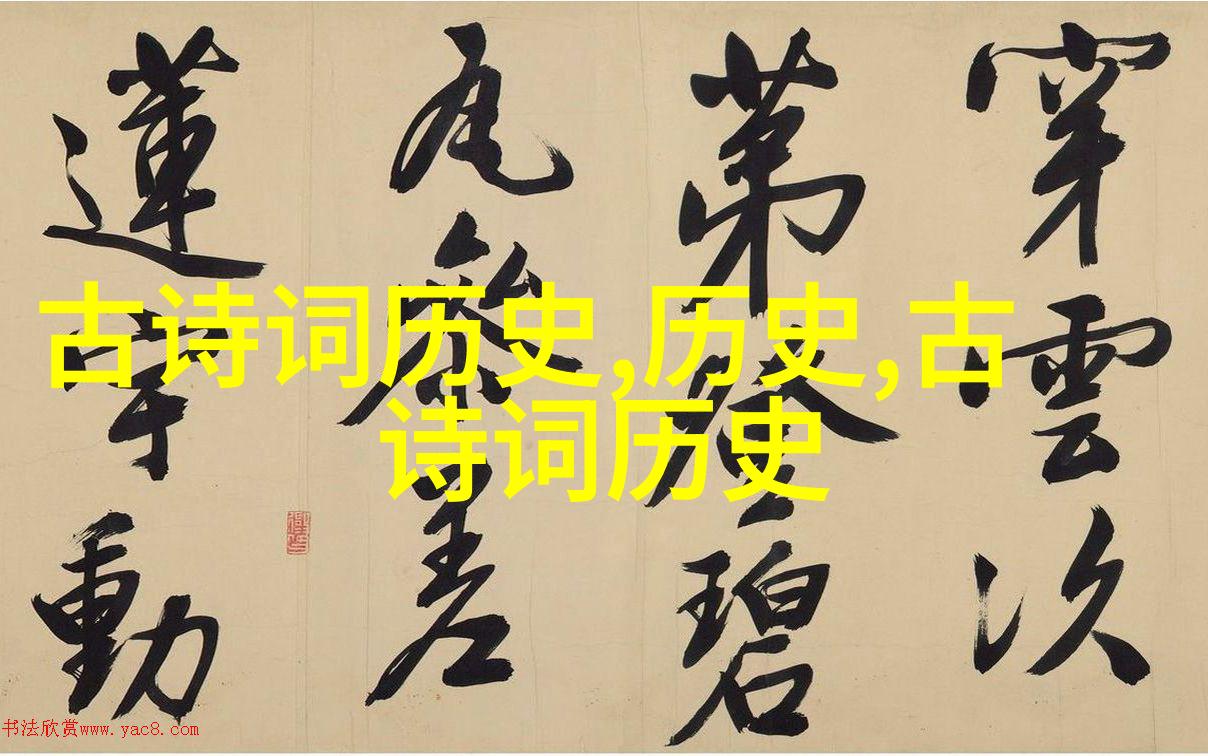 穿雲次
第登碧
瓦參差
蓮宇動
古诗词历史,历史,古
诗词历史
书法欣赏www.yac8.com